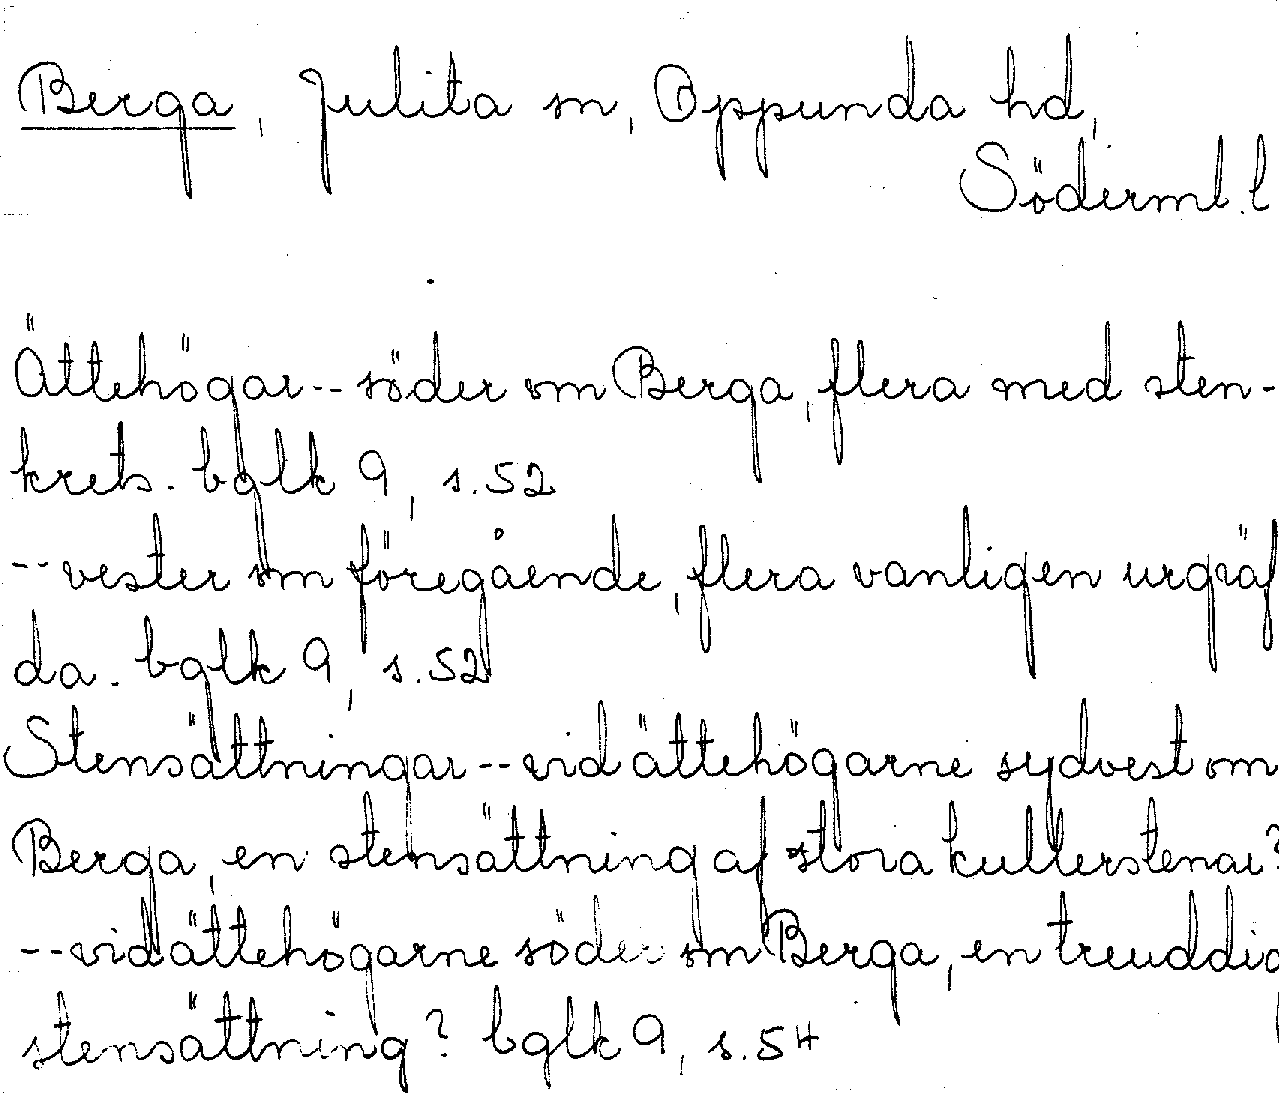 Berga, Julita sn, Oppunda hd,
Söderml. l
Ättehögar -- söder om Berga, flera med sten-
krets. bglk 9, s. 52
-- vester om föregående, flera vanligen urgräf
da. bglk 9, s. 52
Stensättningar -- vid ättehögarne sydvest om
Berga, en stensättning af stora kullerstenar?
-- vid ättehögarne söder om Berga, en treuddig
stensättning? bglk 9, s. 54